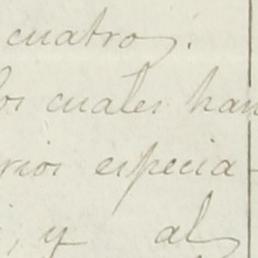 cuatro.
os cuales han
rios especia-
, y al